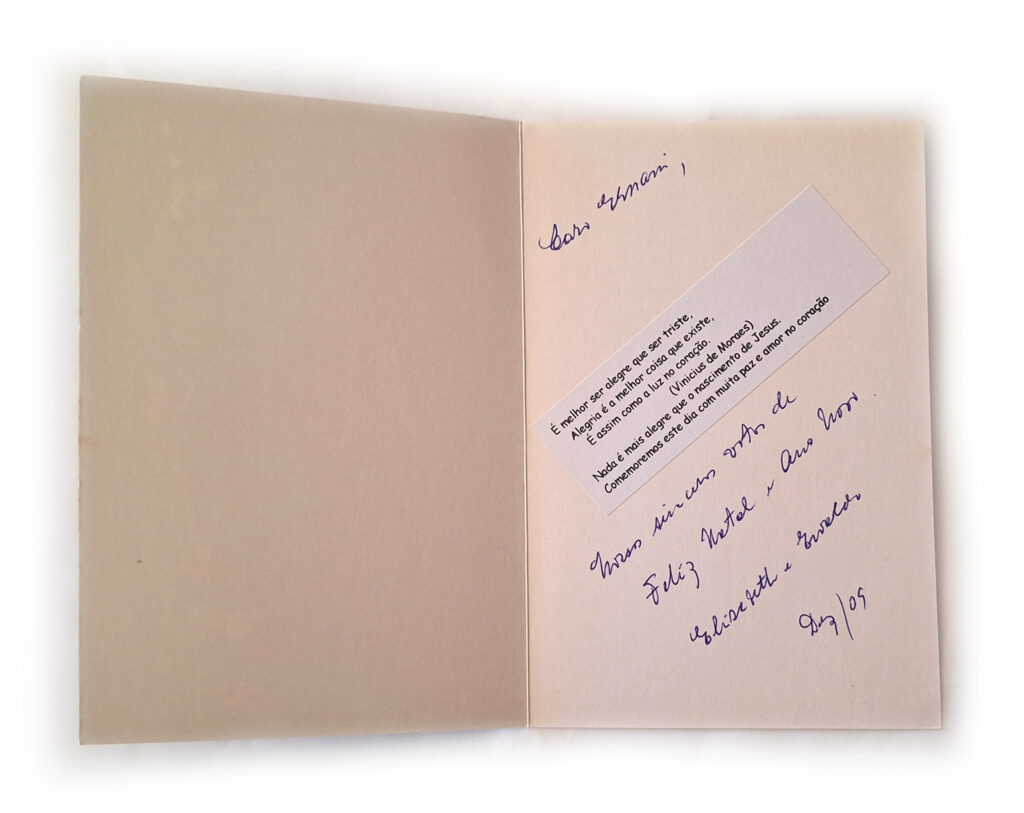 Caro Ernani,
É melhor ser alegre que ser triste,
Alegria é a melhor coisa que existe,
É assim como a luz no coração.
(Vinicius de Moraes)
Nada é mais alegre que o nascimento de Jesus.
Comemoremos este dia com muita paz e amor no coração
Nossos sinceros votos de
Feliz Natal e Ano Novo.
Elisabeth e Evaldo
Dez/09